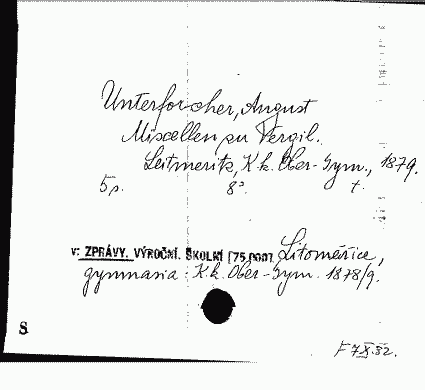 Unterforcher, August
Miscellen zu Vergil.
Leitmeritz, K.k. Ober-Gym., 1879.
5 p. 8°. t.
v: ZPRÁVY. VÝROČNÍ. ŠKOLNÍ [75.000]. Litoměřice,
gymnasia: K.k. Ober-Gym. 1878/9.
S
F 7 X 32.